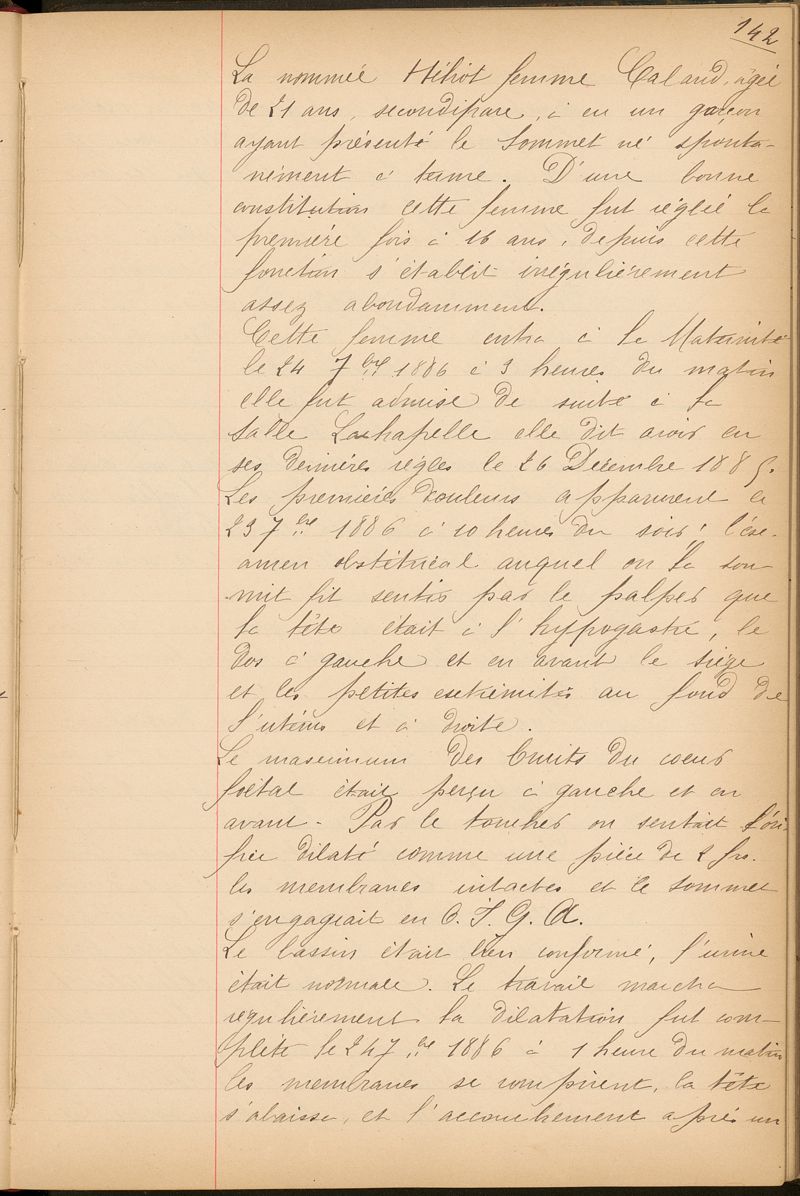 142
La nommée Héliot femme Caland, agée
de 21 ans, secondipare, à eu un garçon
ayant présenté le sommet né sponta-
nément à terme. D'une bonne
constitution cette femme fut réglée la
première fois à 16 ans, depuis cette
fonction s'établit irrégulièrement
assez abondamment.
Cette femme entra à la Maternité
le 24 7bre 1886 à 3 heures du matin
elle fut admise de suite à la
salle Lachapelle elle dit avoir eu
ses dernières règles le 26 Décembre 1885.
Les premières douleurs apparurent le
23 7bre 1886 à 10 heures du soir; l'ex-
amen obstétrical auquel on la sou-
mit fit sentir par le palper que
la tête était à l'hypogastre, le
dos à gauche et en avant le siège
et les petites extrémités au fond de
l'utérus et à droite.
Le maximum des bruits du coeur
foetal était perçu à gauche et en
avant. Par le toucher on sentait l'ori-
fice dilaté comme une pièce de 2 frs.
les membranes intactes et le sommet
s'engageait en O. I. G. A.
Le bassin était bien conformé, l'urine
était normale. Le travail marcha
régulièrement la dilatation fut com-
plète le 24 7bre 1886 à 1 heure du matin
les membranes se rompirent, la tête
s'abaissa, et l'accouchement après un